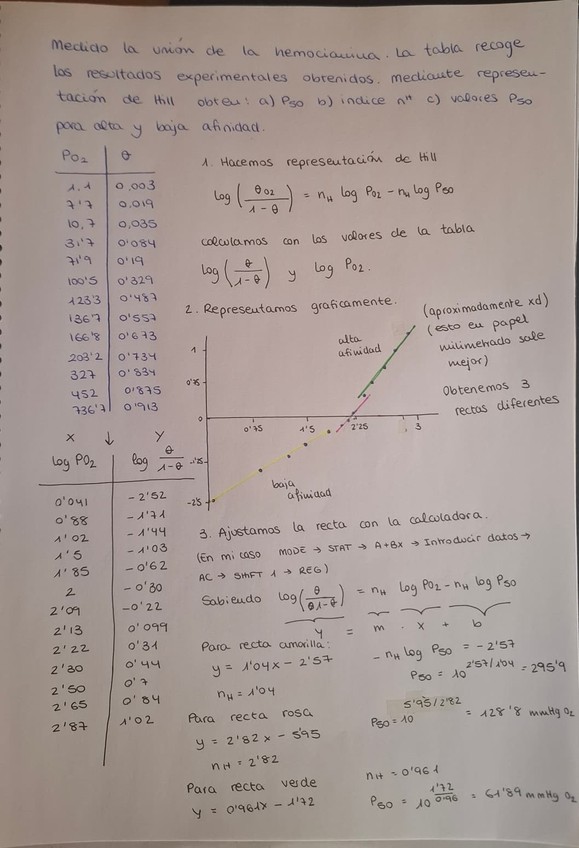 Medido la unión de la hemocianina. La tabla recoge
los resultados experimentales obtenidos. mediante represen-
tación de Hill obten: a) P50 b) indice nH c) valores P50
para alta y baja afinidad.
PO2 θ
1.1 0.003
7'7 0.019
10,7 0,035
31'7 0'084
71'9 0'19
100'5 0'329
123'3 0'487
136'7 0'557
166'8 0'673
203'2 0'734
327 0'834
452 0'875
736'7 0'913
x ↓ y
log PO2 log θ/1-θ
0'041 -2'52
0'88 -1'71
1'02 -1'44
1'5 -1'03
1'85 -0'62
2 -0'30
2'09 -0'22
2'13 0'099
2'22 0'31
2'30 0'44
2'50 0'7
2'65 0'84
2'87 1'02
1. Hacemos representación de Hill
log (θO2/1-θ) = nH log PO2 - nH log P50
calculamos con los valores de la tabla
log (θ/1-θ) y log PO2.
2. Representamos graficamente.
(aproximadamente xd)
(esto en papel
milimetrado sale
mejor)
Obtenemos 3
rectas diferentes
alta
afinidad
1
0'25
0
0'75 1'5 2'25 3
-2'5
baja
afinidad
3. Ajustamos la recta con la calculadora.
(En mi caso MODE → STAT → A+BX → Introducir datos →
AC → SHIFT 1 → REG)
Sabiendo log(θ/1-θ) = nH log PO2 - nH log P50
y = m . x + b
Para recta amarilla:
y = 1'04x - 2'57
nH = 1'04
- nH log P50 = -2'57
P50 = 10^2'57/1'04 = 295'9
Para recta rosa
y = 2'82x - 5'95
nH = 2'82
P50 = 10^5'95/2'82 = 128'8 mmHg O2
Para recta verde
y = 0'961x - 1'72
nH = 0'961
P50 = 10^1'72/0'96 = 61'89 mmHg O2